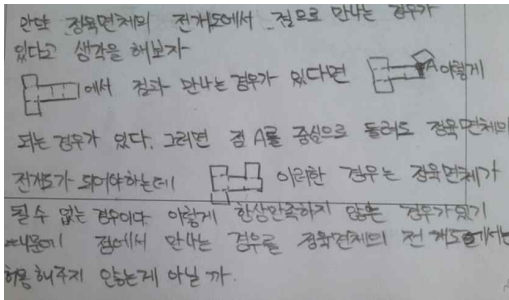 만약 정육면체의 전개도에서 점으로 만나는 경우가
있다고 생각을 해보자
에서 점과 만나는 경우가 있다면 A 이렇게
되는 경우가 있다. 그러면 점 A를 중심으로 돌려도 정육면체의
전개도가 되어야하는데 이러한 경우는 정육면체가
될 수 없는 경우이다 이렇게 항상만족하지 않은 경우가있기
때문에 점에서 만나는 경우를 정육면체의 전개도에서는
허용해주지 않는게 아닐까.